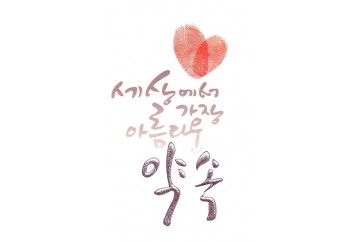 세상에서
가장
아름다운
약속